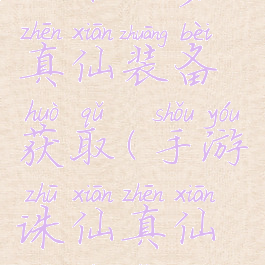 zhēn xiān zhuāng bèi
真仙装备
huò qǔ shǒu yóu
获取(手游
zhū xiān zhēn xiān
诛仙真仙